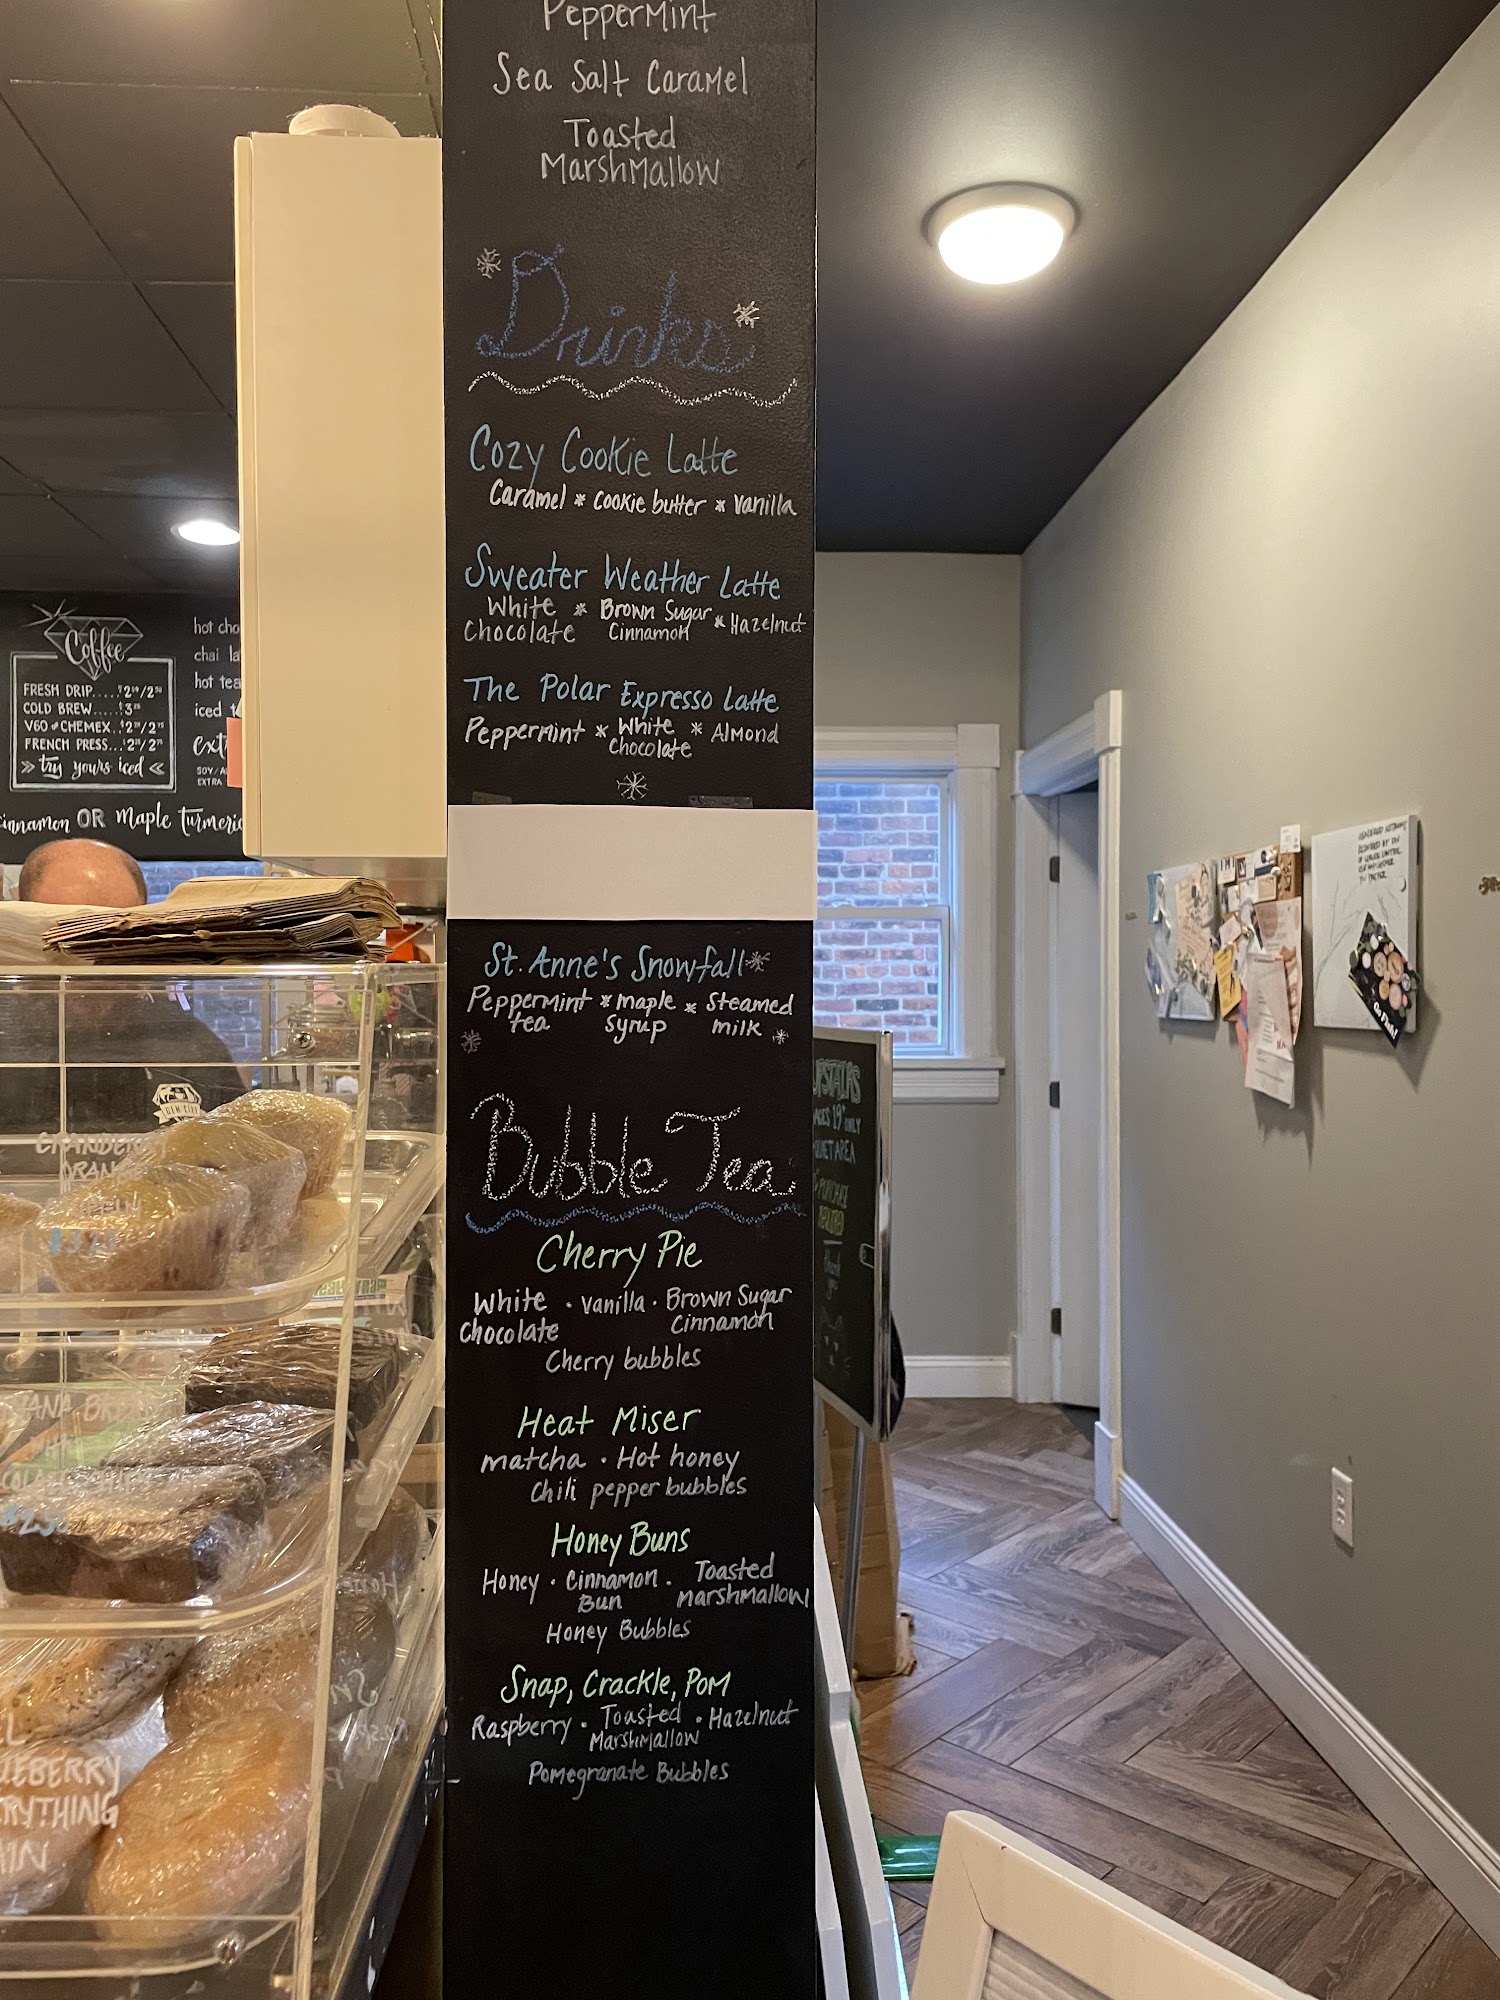 PepperMint
Sea Salt Caramel
Toasted
Marshmallow
Drinks
Cozy Cookie Latte
Caramel * Cookie butter * Vanilla
Sweater Weather Latte
White * Brown Sugar * Hazelnut
Chocolate Cinnamon
The Polar Expresso Latte
Peppermint * White * Almond
Chocolate
St. Anne's Snowfall
Peppermint * maple * Steamed
tea syrup milk
Bubble Tea
Cherry Pie
White · Vanilla · Brown Sugar
Chocolate Cinnamon
Cherry bubbles
Heat Miser
matcha · Hot honey
Chili pepper bubbles
Honey Buns
Honey · Cinnamon · Toasted
Bun Marshmallow
Honey Bubbles
Snap, Crackle, POM
Raspberry · Toasted · Hazelnut
Marshmallow
Pomegranate Bubbles
Coffee
FRESH DRIP
COLD BREW
V60 or CHEMEX
FRENCH PRESS
>> try yours iced <<
hot cho
chai la
hot tea
iced t
ext
SOY/A
EXTRA
innamon OR Maple turmeric
GEM CITY
ORAN
ANA BR
UEBERRY
RYTHING
AIN
UPSTAIRS
AGES 19+ ONLY
QUIET AREA
PURCHASE
thank
you